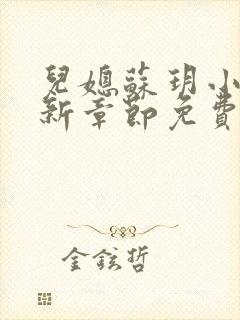 兒媳蘇玥小
新章節免費
金鉉哲